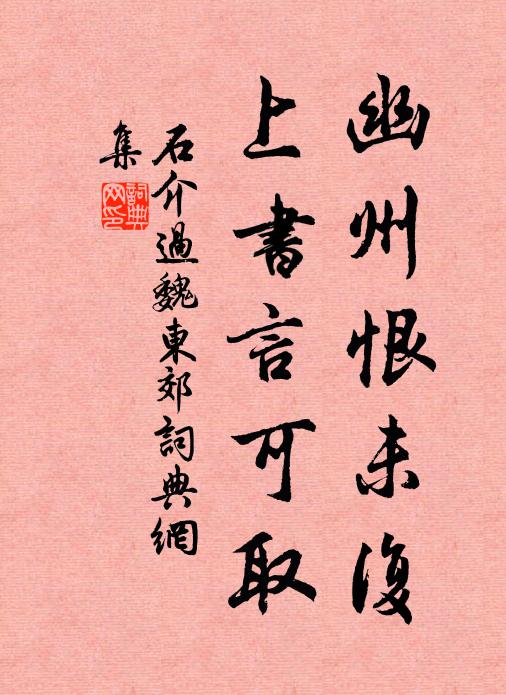 幽州恨未復
上書言可取
石介過魏東郊詞典網
集
詞典
网印